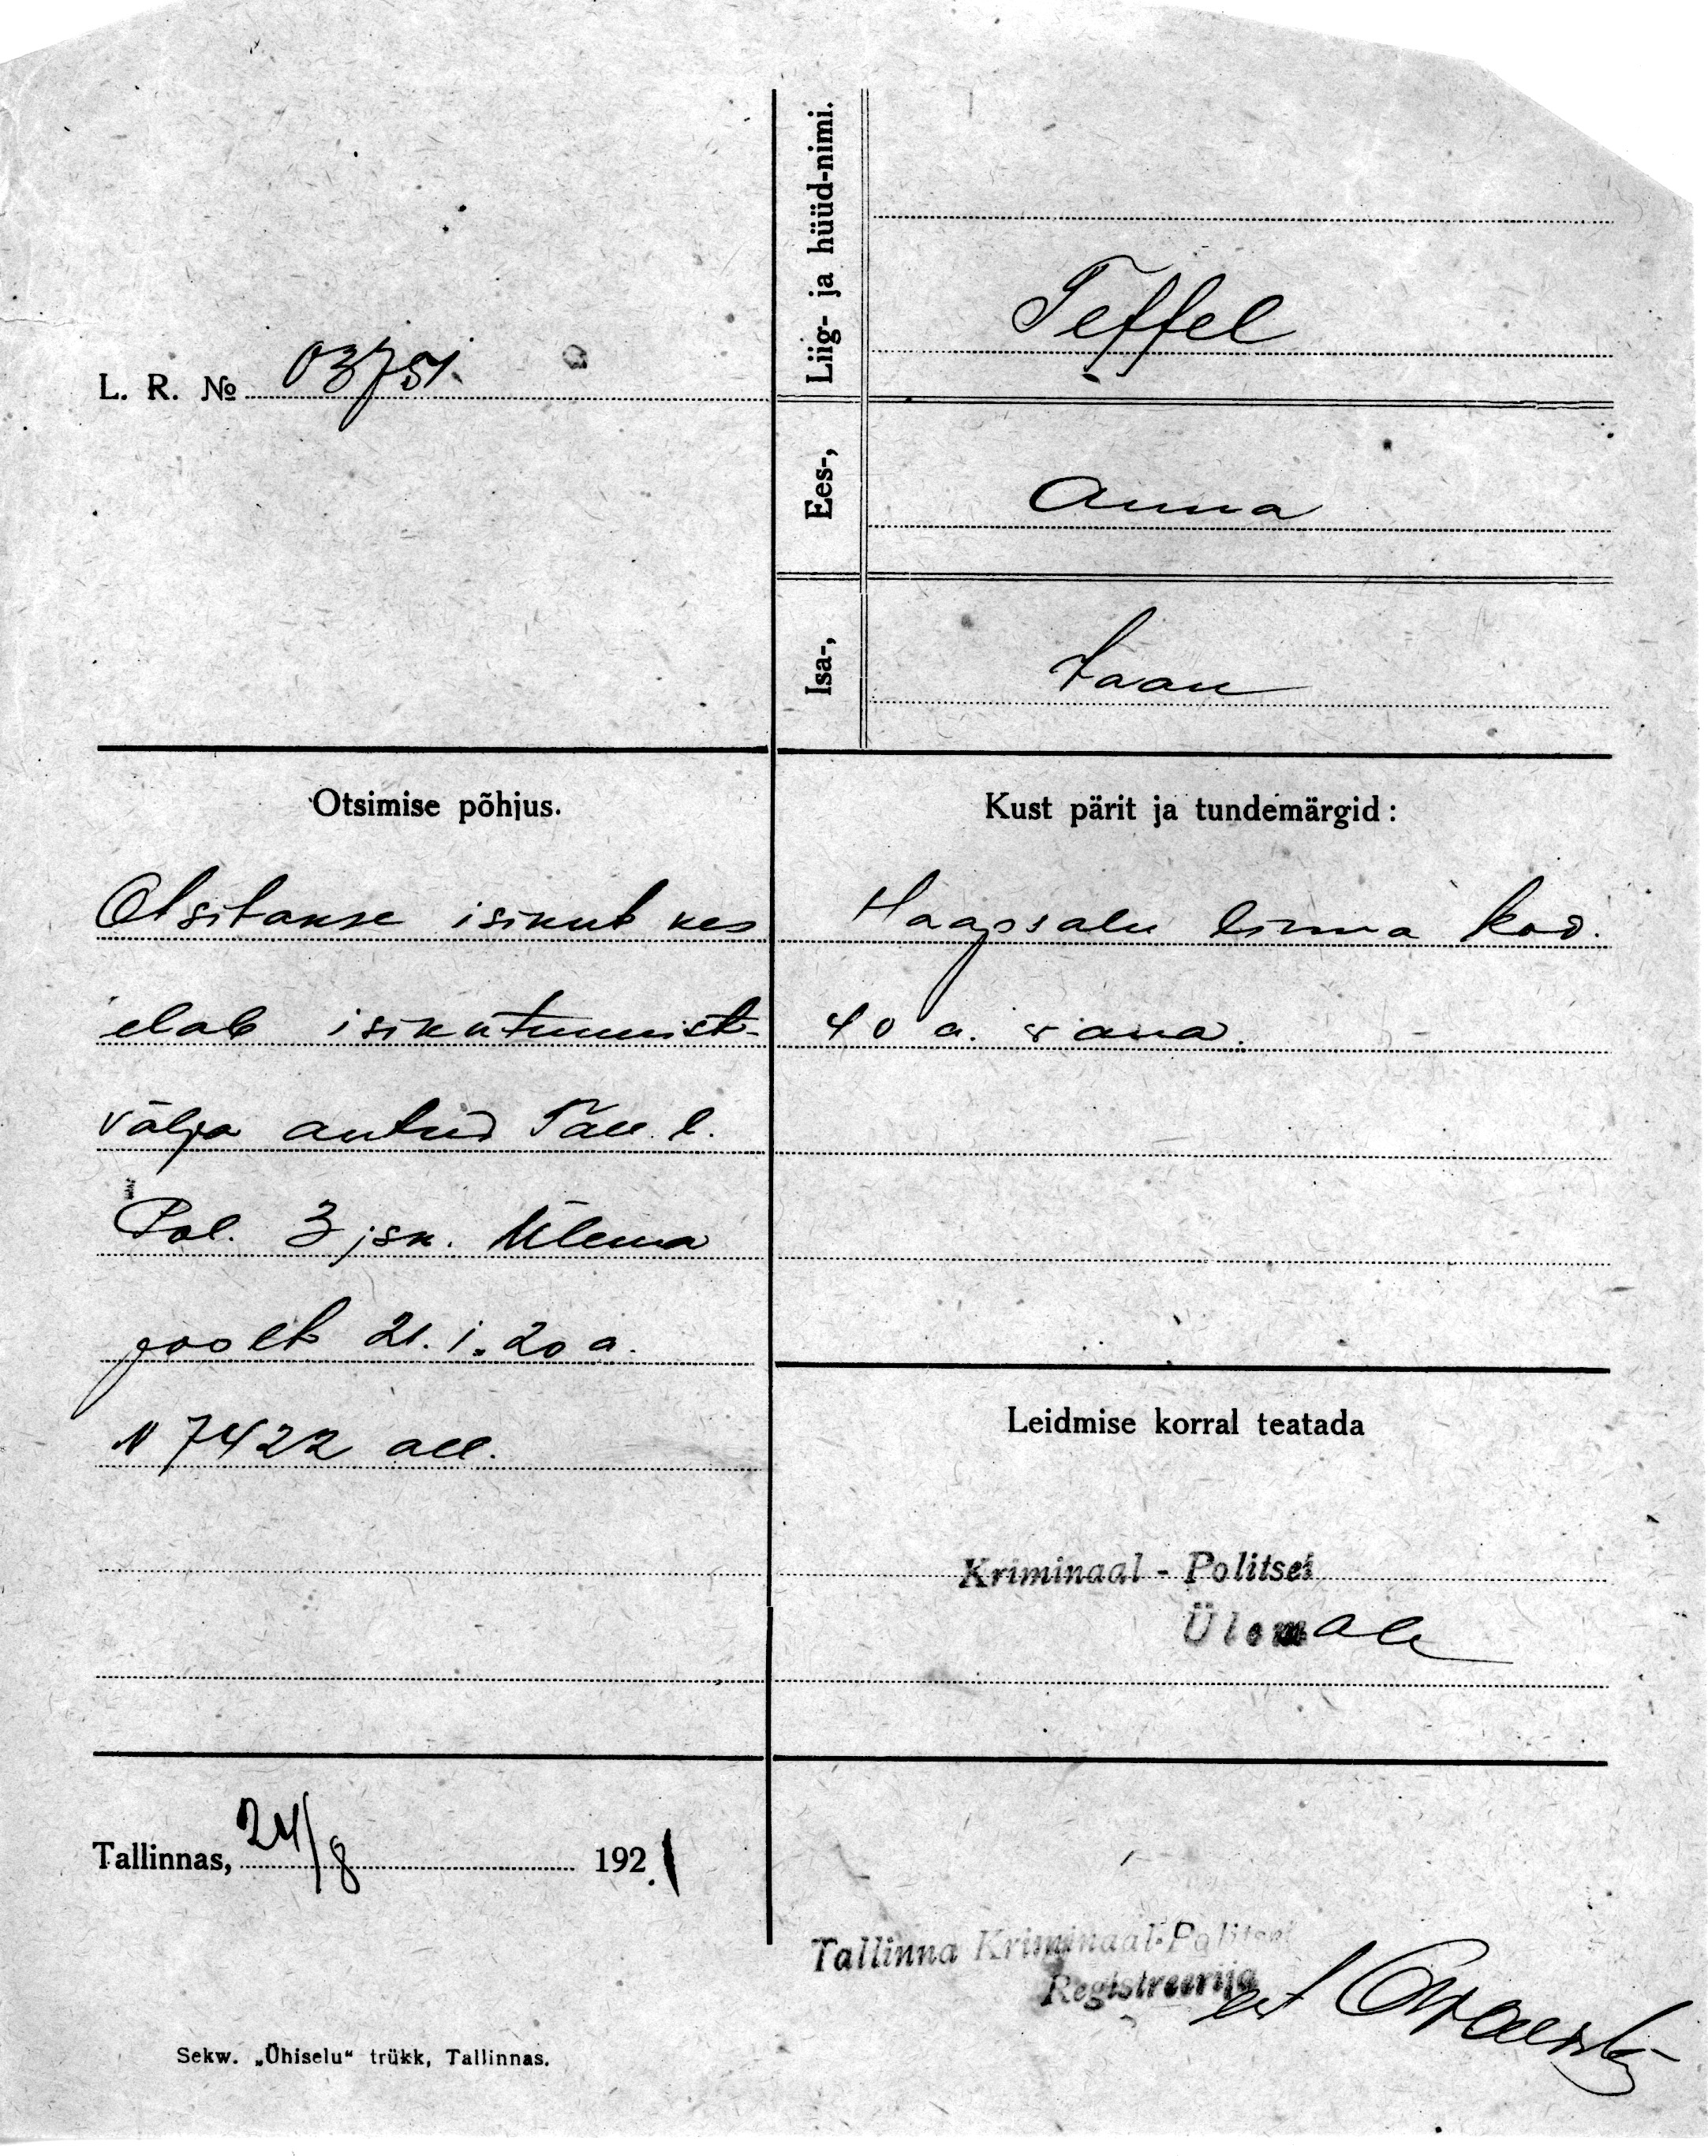 Liig- ja hüüd-nimi.
Teffel
L. R. № 03751.
Ees-,
Anna
Isa-,
Jaan
Otsimise põhjus.
Otsitakse isikut kes
elab isikutunnist-
välja antud Tall. l.
Pol. 3 jsk. Ülema
poolt 21.i.20 a.
N 7422 all.
Kust pärit ja tundemärgid:
Haapsalu linna kod.
40 a. vana.
Leidmise korral teatada
Kriminaal-Politsei
Ülemale
Tallinnas, 24/8 192.1
Tallinna Kriminaal-Politsei
Registreerija
Sekw. „Ühiselu“ trükk, Tallinnas.